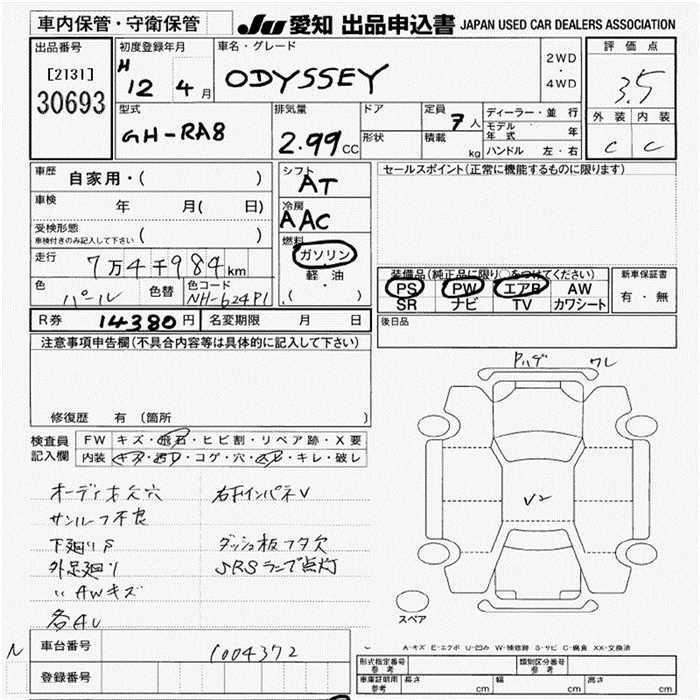 車内保管・守衛保管 JU 愛知 出品申込書 JAPAN USED CAR DEALERS ASSOCIATION
出品番号
[2131]
30693
初度登録年月
H 12 4 月
車名・グレード
ODYSSEY
2WD
・
4WD
評価点
3.5
外装 内装
C C
型式
GH-RA8
排気量
2.99 CC
ドア
形状
定員
7人
積載
kg
ディーラー・並行
モデル年式 年
ハンドル 左・右
車歴 自家用・( )
車検 年 月( 日)
受検形態
車検付きのみ記入して下さい ( )
走行 7万4千984km
色 パール 色替 色コード NH-624P1
シフト
AT
冷房
AAC
燃料
ガソリン
軽油
( )
セールスポイント(正常に機能するものに限ります)
装備品(純正品に限り○をつけてください)
PS PW エアB AW
SR ナビ TV カワシート
新車保証書
有・無
R券 14380円 名変期限 月 日
後日品
注意事項申告欄(不具合内容等は具体的に記入して下さい)
修復歴 有 (箇所 )
検査員
記入欄
FW キズ・飛石・ヒビ割・リペア跡・X要
内装 キズ・汚レ・コゲ・穴・スレ・キレ・破レ
オーディオ欠穴 右FインパネV
サンルーフ不良
下廻りS ダッシュ板フタ欠
外足廻り SRSランプ点灯
〃AWキズ
各AU
Pハゲ ワレ
V2
スペア
N
車台番号 1004372
登録番号
A-キズ E-エクボ U-凹み W-補修跡 S-サビ C-腐食 XX-交換済
形式指定番号
参考
類別区分番号
参考
車庫証明用
参考
長さ cm 幅 cm 高さ cm